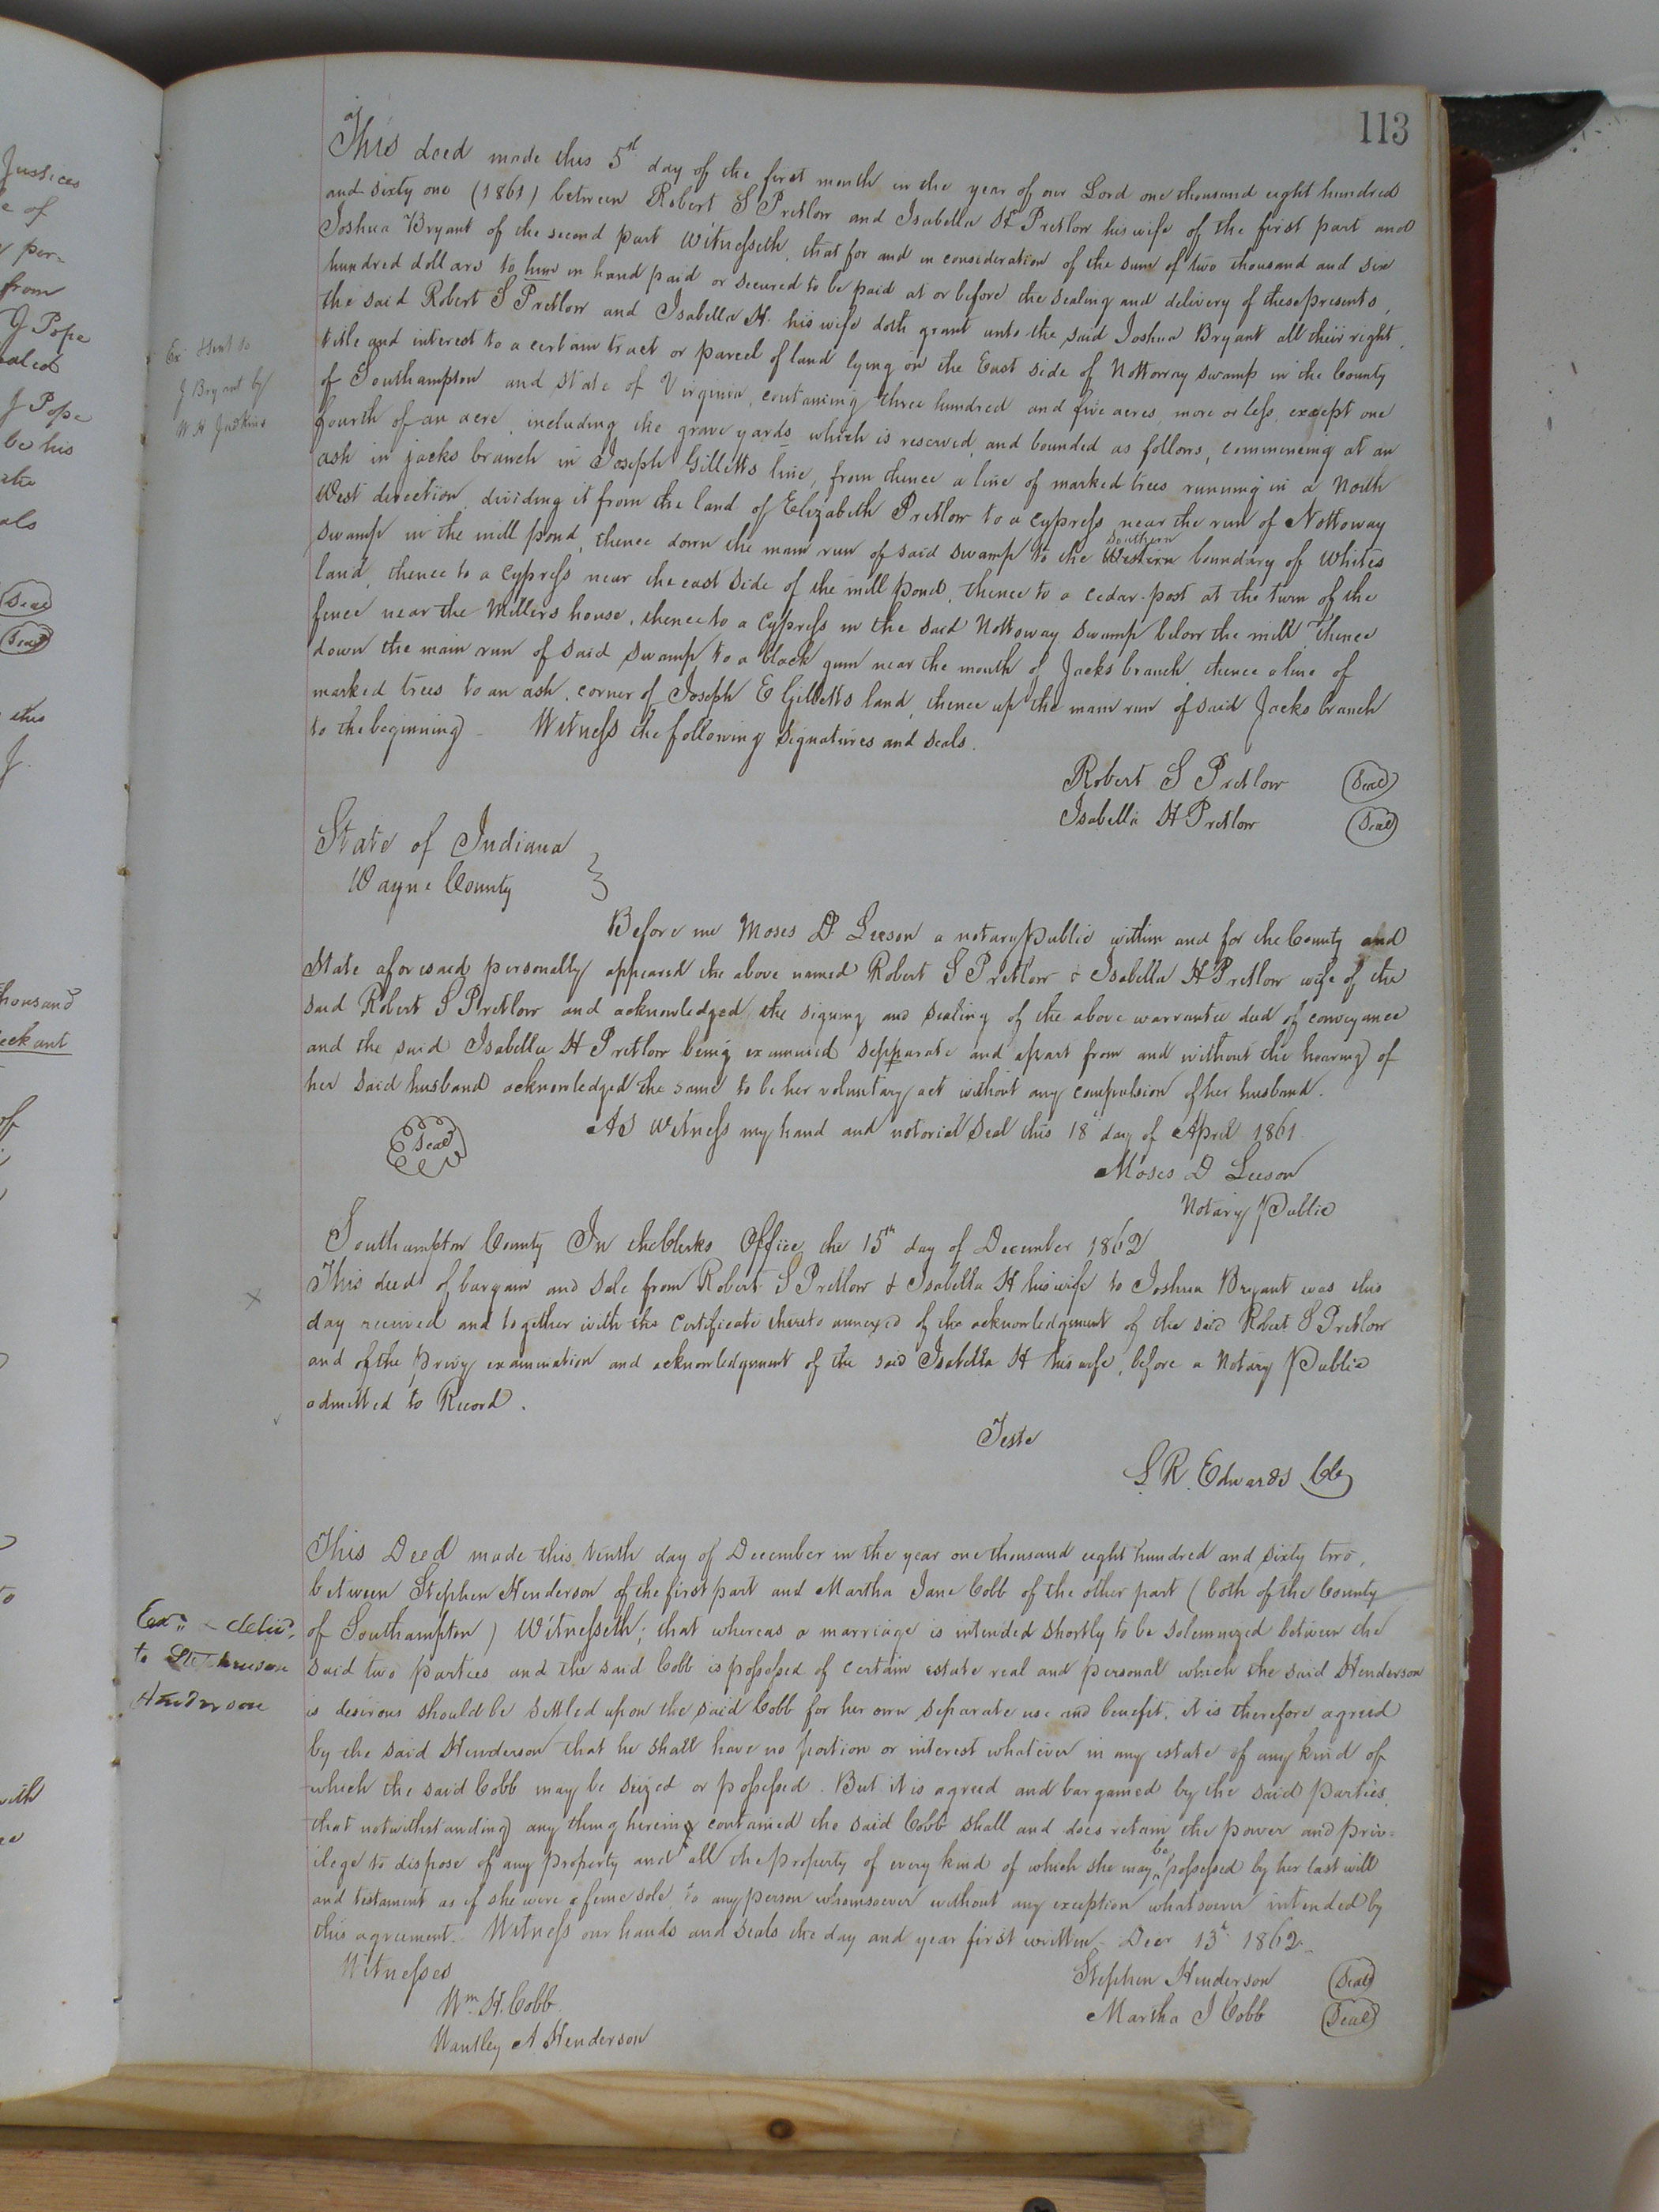 113
This deed made this 5th day of the first month in the year of our Lord one thousand eight hundred
and sixty one (1861) between Robert S Pretlow and Isabella H Pretlow his wife of the first part and
Joshua Bryant of the second part Witnesseth, that for and in consideration of the sum of two thousand and six
hundred dollars to him in hand paid or secured to be paid at or before the sealing and delivery of these presents,
the said Robert S Pretlow and Isabella H. his wife doth grant unto the said Joshua Bryant all their right,
title and interest to a certain tract or parcel of land lying on the East side of Nottoway swamp in the County
of Southampton and state of Virginia, containing three hundred and five acres, more or less, except one
fourth of an acre, including the grave yards which is reserved, and bounded as follows, commencing at an
ash in jacks branch in Joseph Gilletts line, from thence a line of marked trees running in a North
West direction, dividing it from the land of Elizabeth Pretlow to a cypress near the run of Nottoway
swamp in the mill pond, thence down the main run of said swamp to the Western southern boundary of Whites
land, thence to a cypress near the east side of the mill pond, thence to a cedar post at the turn of the
fence near the Millers house, thence to a Cypress in the said Nottoway swamp below the mill, Thence
down the main run of said swamp to a black gum near the mouth of Jacks branch, thence a line of
marked trees to an ash, corner of Joseph E Gilletts land, thence up the main run of said Jacks branch
to the beginning - Witness the following signatures and seals.
Robert S Pretlow (Seal)
Isabella H Pretlow (Seal)
Ex sent to
J Bryant by
W H Judkins
State of Indiana
Wayne County }
Before me Moses D Leeson a notary Public within and for the County and
State aforesaid, personally appeared the above named Robert S Pretlow & Isabella H Pretlow wife of the
said Robert S Pretlow and acknowledged the signing and sealing of the above warrantee deed of conveyance
and the said Isabella H Pretlow being examined sepparate and apart from and without the hearing of
her said husband acknowledged the same to be her voluntary act without any compulsion of her husband.
(Seal) As Witness my hand and notorial seal this 18 day of April 1861
Moses D Leeson
Notary Public
Southampton County In the Clerks Office the 15th day of December 1862
This deed of bargain and sale from Robert S Pretlow & Isabella H his wife to Joshua Bryant was this
day received and together with the certificate thereto annexed of the acknowledgment of the said Robert S Pretlow
and of the privy examination and acknowledgment of the said Isabella H his wife, before a Notary Public
admitted to Record.
Teste
L R. Edwards Clk
This Deed made this tenth day of December in the year one thousand eight hundred and sixty two,
between Stephen Henderson of the first part and Martha Jane Cobb of the other part (both of the County
of Southampton) Witnesseth; that whereas a marriage is intended shortly to be solemnized between the
said two parties and the said Cobb is possessed of certain estate real and personal which the said Henderson
is desirous should be settled upon the said Cobb for her own separate use and benefit, it is therefore agreed
by the said Henderson that he shall have no portion or interest whatever in any estate of any kind of
which the said Cobb may be seized or possessed. But it is agreed and bargained by the said parties,
that notwithstanding any thing herein contained the said Cobb shall and does retain the power and priv-
ilege to dispose of any property and all the property of every kind of which she may be possessed by her last will
and testament as if she were a feme sole, to any person whomsoever without any exception whatsoever intended by
this agreement. Witness our hands and seals the day and year first written - Decr 13th 1862.
Ex. & delivd.
to
Henderson
Witnesses
Wm H. Cobb
A Henderson
Stephen Henderson (Seal)
Martha J Cobb (Seal)
Justices
from
J Pope
J Pope
be his
(Seal)
(Seal)
this